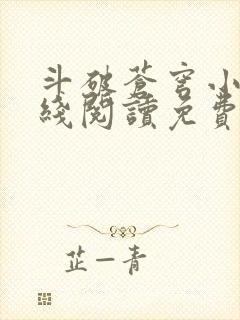 斗破蒼穹小
綫閱讀免費
芷一青